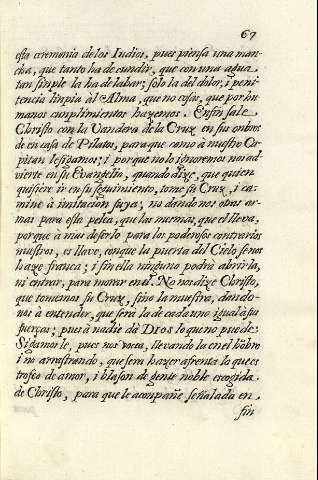 67
esta ceremonia de los Iudios, pues piensa una man-
cha, que tanto ha de cundir, que con una agua
tan simple la ha de labar; solo la del dolor, i peni-
tencia limpia al Alma, que no cosas, que por hu-
manos cumplimientos hazemos. Enfin sale
Christo con la Vandera de la Cruz en su ombro
de en casa de Pilatos, para que como à nuestro Ca-
pitan le sigamos; i porque no lo ignoremos nos ad-
vierte en su Evangelio, quando dize, que quien
quisiere ir en su seguimiento, tome su Cruz, i ca-
mine à imitacion suya; no dandonos otras ar-
mas para esta pelea, que las mesmas, que el lleva,
porque à mas de serlo para los poderosos contrarios
nuestros, es llave, conque la puerta del Cielo se nos
haze franca; i sin ella ninguno podrà abrirla,
ni entrar, para morar en el. No nos dize Christo,
que tomemos su Cruz, sino la nuestra, dando-
nos à entender, que serà la de cada uno igual à sus
fuerças; pues à nadie dà Dios lo que no puede.
Sigamosle, pues nos voca, llevando la en el hõbro
i no arrastrando, que serà hazer afrenta lo que es
trofeo de amor, i blason de gente noble escogida
de Christo, para que le acompañe señalada en
fin